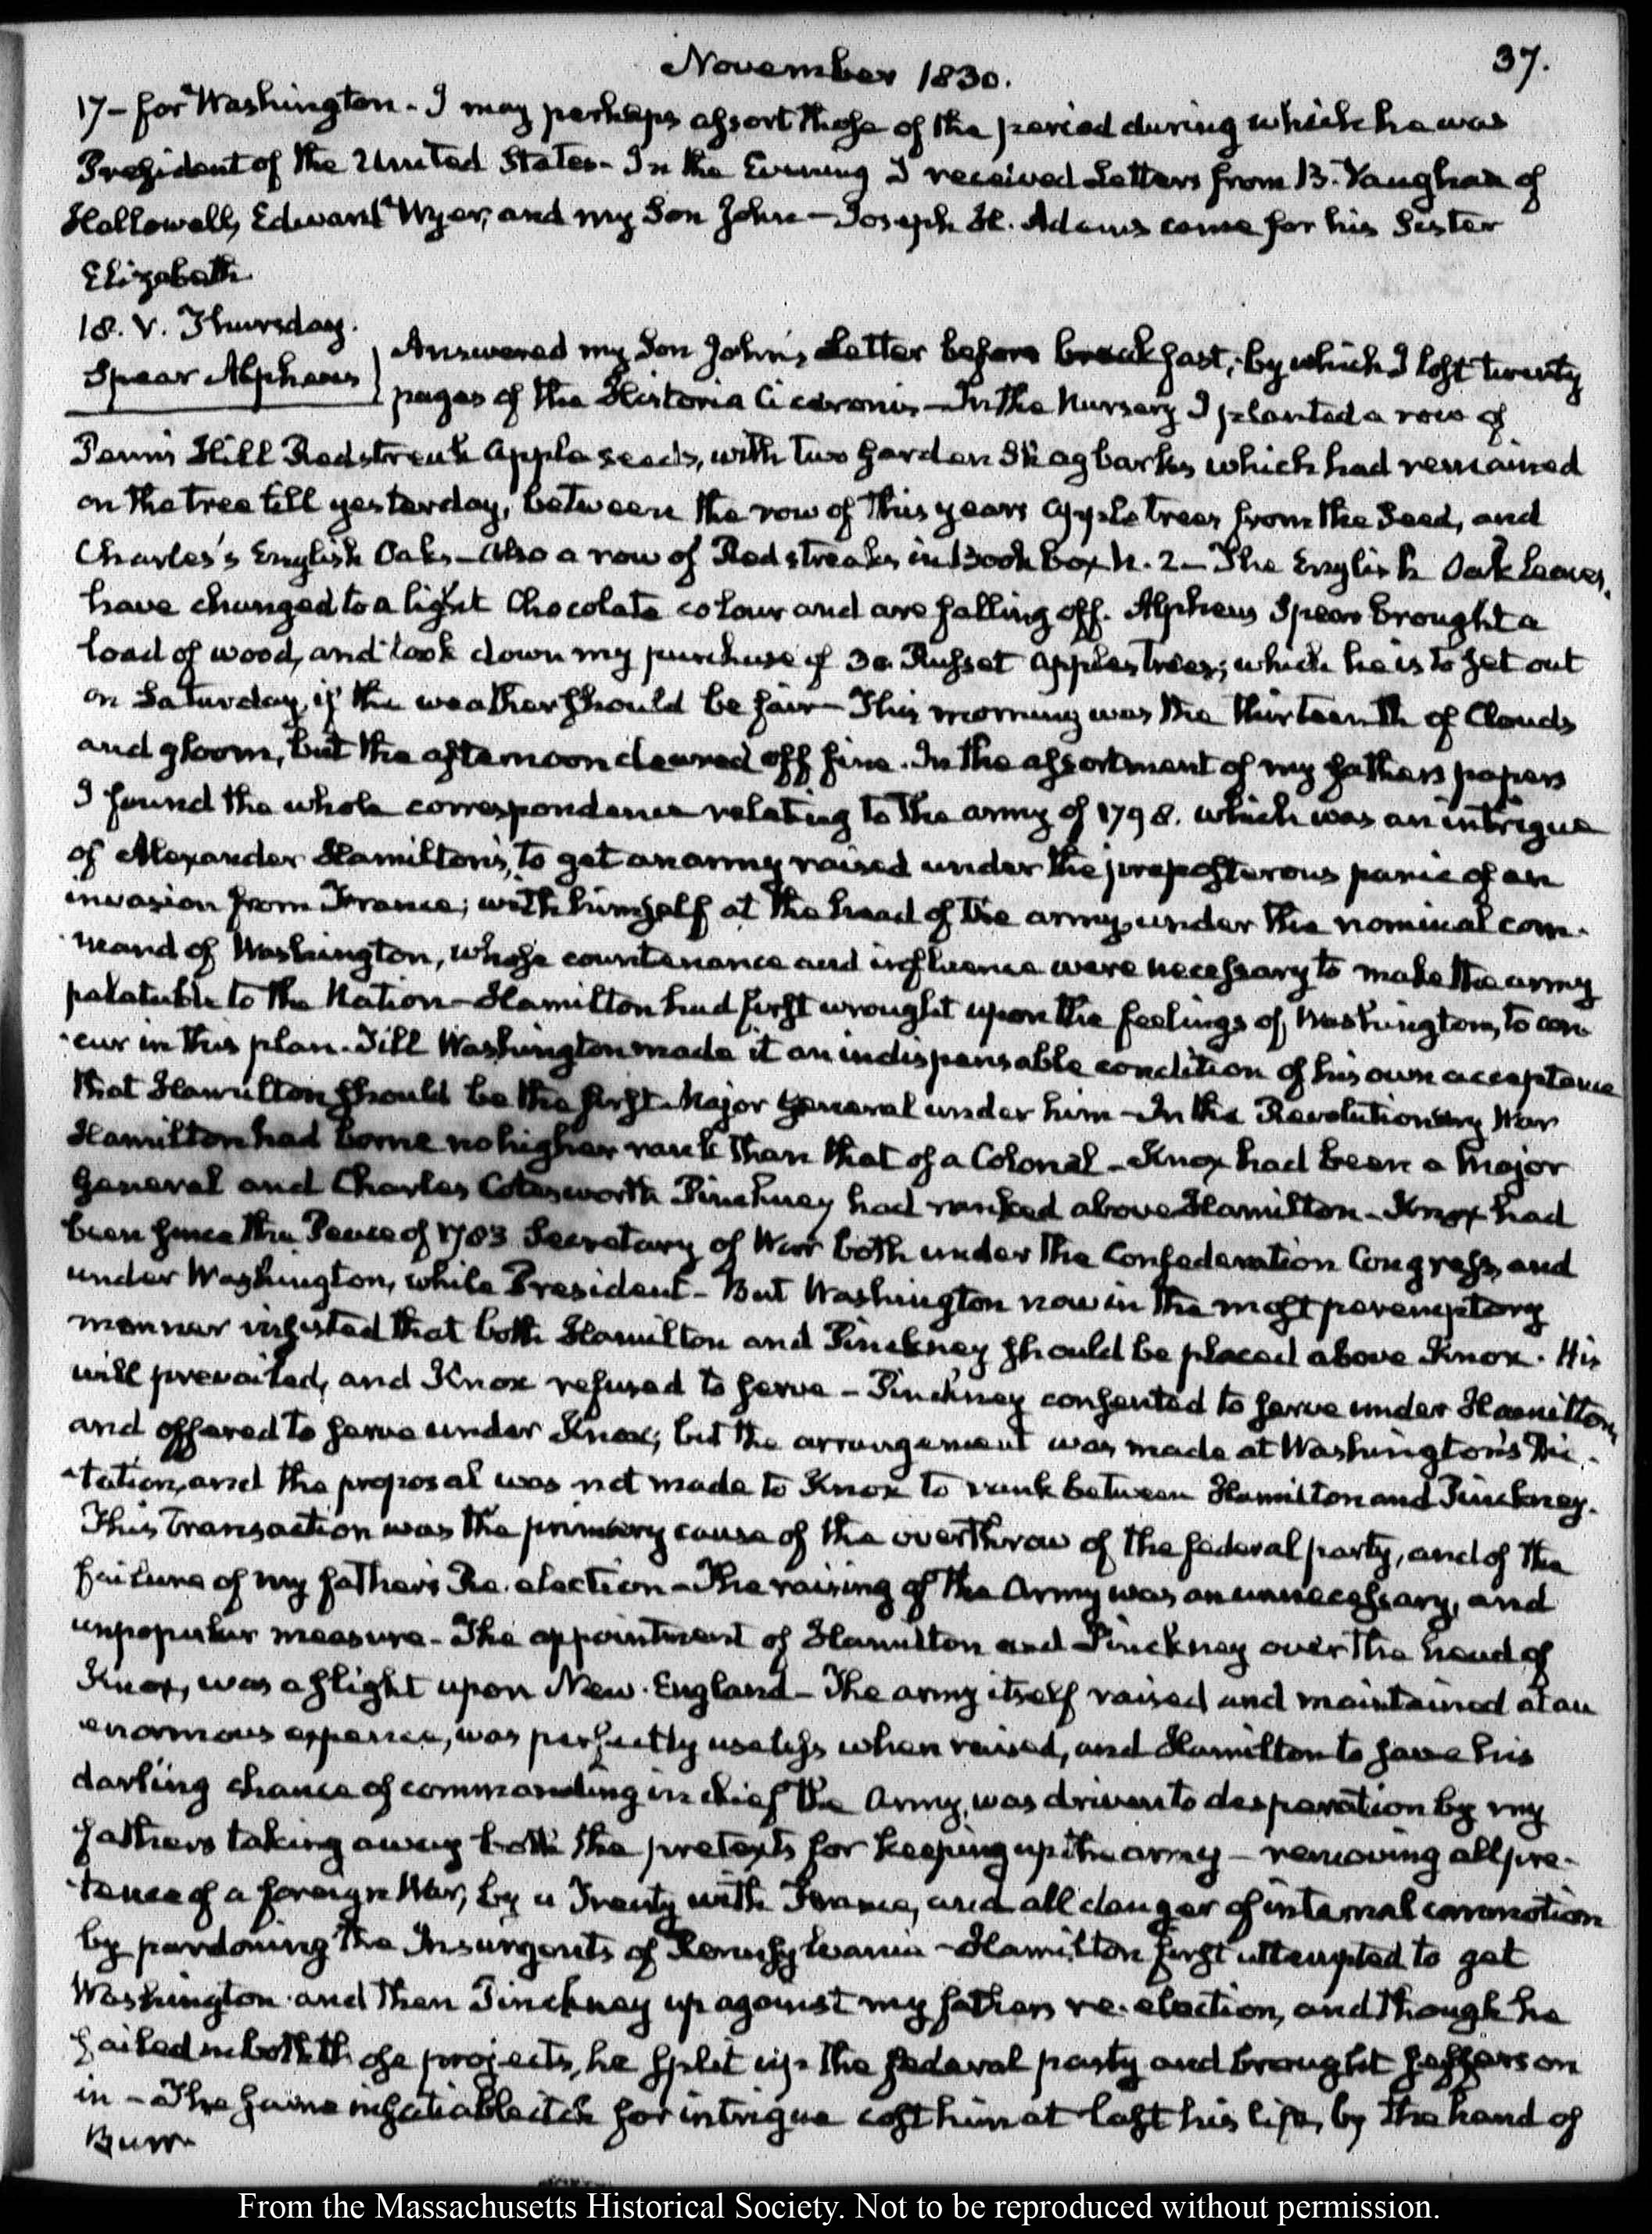 November 1830.
37.
17 – for Washington – I may perhaps assort those of the period during which he was
President of the United States – In the Evening I received Letters from B. Vaughan of
Hallowell, Edward Wyer, and my Son John – Joseph H. Adams came for his Sister
Elizabeth
18. V. Thursday.
Spear Alpheus
Answered my Son John's Letter before breakfast; by which I lost twenty
pages of the Historia Ciceronis – In the Nursery I planted a row of
Penn's Hill Redstreak apple seeds, with two garden Shagbarks which had remained
on the tree till yesterday, between the row of this years Apple trees from the Seed, and
Charles's English Oaks – Also a row of Redstreaks in Book box N. 2 – The English Oak leaves,
have changed to a light Chocolate colour and are falling off. Alpheus Spear brought a
load of wood, and took down my purchase of 30 Russet apples trees; which he is to set out
on Saturday, if the weather should be fair – This morning was the thirteenth of Clouds
and gloom, but the afternoon cleared off fine. In the assortment of my fathers papers
I found the whole correspondence relating to the army of 1798. which was an intrigue
of Alexander Hamilton's, to get an army raised under the preposterous panic of an
invasion from France; with himself at the head of the army, under the nominal com-
mand of Washington, whose countenance and influence were necessary to make the army
palatable to the Nation – Hamilton had first wrought upon the feelings of Washington, to con-
cur in this plan. Till Washington made it an indispensable condition of his own acceptance
that Hamilton should be the first Major General under him – In the Revolutionary War
Hamilton had borne no higher rank than that of a Colonel – Knox had been a Major
General and Charles Cotesworth Pinckney had ranked above Hamilton – Knox had
been since the Peace of 1783 Secretary of War both under the Confederation Congress, and
under Washington, while President – But Washington now in the most peremptory
manner insisted that both Hamilton and Pinckney should be placed above Knox. His
will prevailed, and Knox refused to serve – Pinckney consented to serve under Hamilton,
and offered to serve under Knox; but the arrangement was made at Washington's Dic-
tation, and the proposal was not made to Knox to rank between Hamilton and Pinckney.
This transaction was the primary cause of the overthrow of the federal party, and of the
failure of my father's Re-election – The raising of the Army was an unnecessary, and
unpopular measure – The appointment of Hamilton and Pinckney over the head of
Knox, was a slight upon New-England – The army itself raised and maintained at an
enormous expence, was perfectly useless when raised, and Hamilton to save his
darling chance of commanding in chief the Army, was driven to desperation by my
fathers taking away both the pretexts for keeping up the army – removing all pre-
tence of a foreign War, by a Treaty with France, and all danger of internal commotion
by pardoning the Insurgents of Pennsylvania – Hamilton first attempted to get
Washington and then Pinckney up against my fathers re-election, and though he
failed in both these projects, he split up the federal party and brought Jefferson
in – The same insatiable itch for intrigue cost him at last his life, by the hand of
Burr
From the Massachusetts Historical Society. Not to be reproduced without permission.